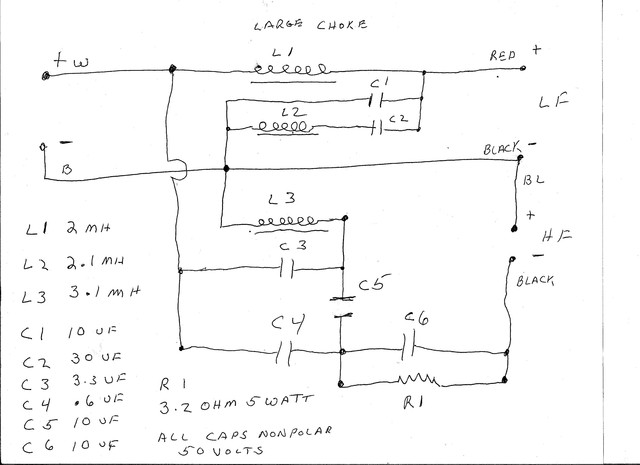 LARGE CHOKE
+ W
L1
RED +
C1
LF
L2
C2
-
B
BLACK -
BL
L3
+
HF
-
BLACK
C3
C5
C4
C6
R1
L1 2 MH
L2 2.1 MH
L3 3.1 MH
C1 10 UF
C2 30 UF
C3 3.3 UF
C4 .6 UF
C5 10 UF
C6 10 UF
R1
3.2 OHM 5 WATT
ALL CAPS NONPOLAR
50 VOLTS